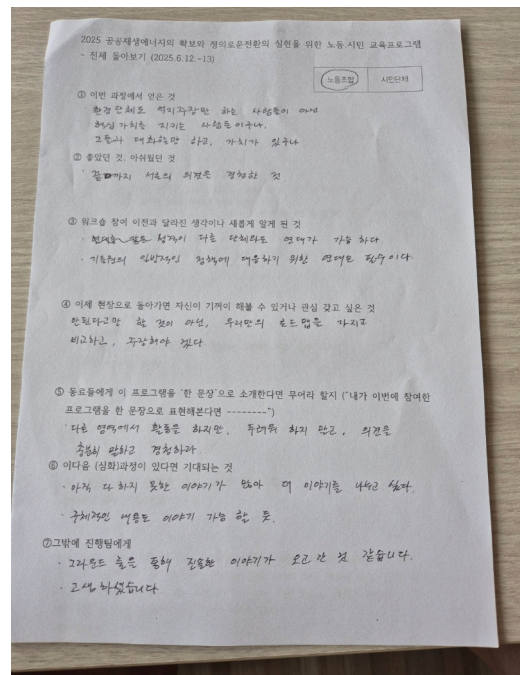 2025 공공재생에너지의 확보와 정의로운전환의 실현을 위한 노동.시민 교육프로그램
- 전체 돌아보기 (2025.6.12.~13)
노동조합 시민단체
① 이번 과정에서 얻은 것
환경단체도 억지주장만 하는 사람들이 아닌
핵심가치를 지키는 사람들이구나.
그들과 대화할만 하고, 가치가 있구나
② 좋았던 것, 아쉬웠던 것
끝까지 서로의 의견을 경청한 것
③ 워크숍 참여 이전과 달라진 생각이나 새롭게 알게 된 것
· 성격이 다른 단체와도 연대가 가능하다
· 기득권의 일방적인 정책에 대응하기 위한 연대는 필수이다.
④ 이제 현장으로 돌아가면 자신이 기꺼이 해볼 수 있거나 관심 갖고 싶은 것
안된다고만 할 것이 아닌, 우리만의 로드맵을 가지고
비교하고, 주장해야 겠다
⑤ 동료들에게 이 프로그램을 '한 문장'으로 소개한다면 무어라 할지 ("내가 이번에 참여한
프로그램을 한 문장으로 표현해본다면 --------")
'다른 영역에서 활동을 하지만, 두려워 하지 말고, 의견을
충분히 말하고 경청하라
⑥ 이다음 (심화)과정이 있다면 기대되는 것
· 아직 다 하지 못한 이야기가 많아 더 이야기를 나누고 싶다.
· 구체적인 내용도 이야기 가능 할 듯.
⑦그밖에 진행팀에게
· 그라운드 룰을 통해 진솔한 이야기가 오고 간 것 같습니다.
· 고생하셨습니다